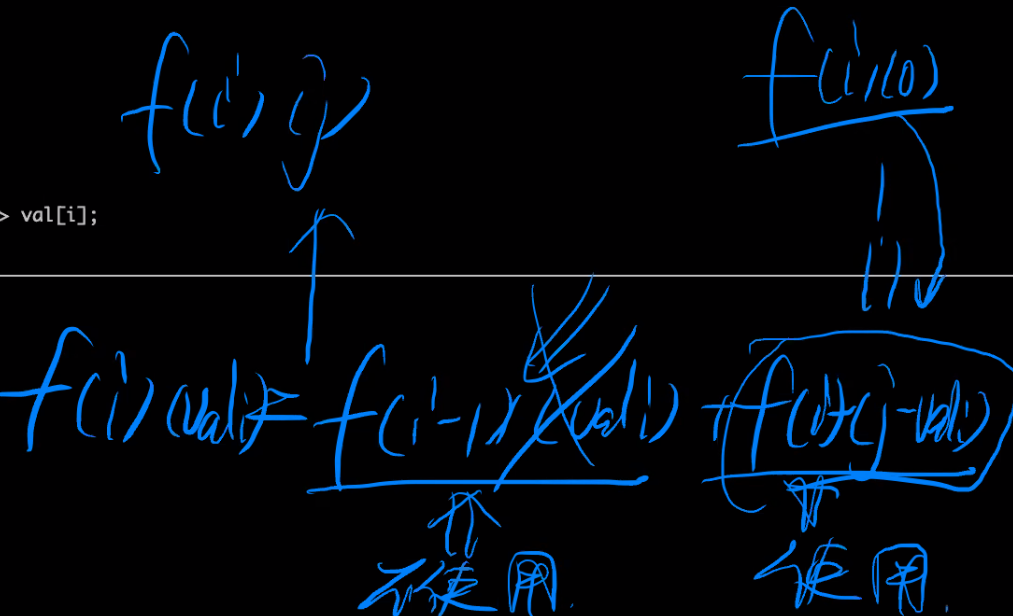 f(i)(j)
f(i)(0)
> val[i];
1
f(i)(vali)= f(i-1)(vali) + f(i)(j-vali)
不使用.
使用.